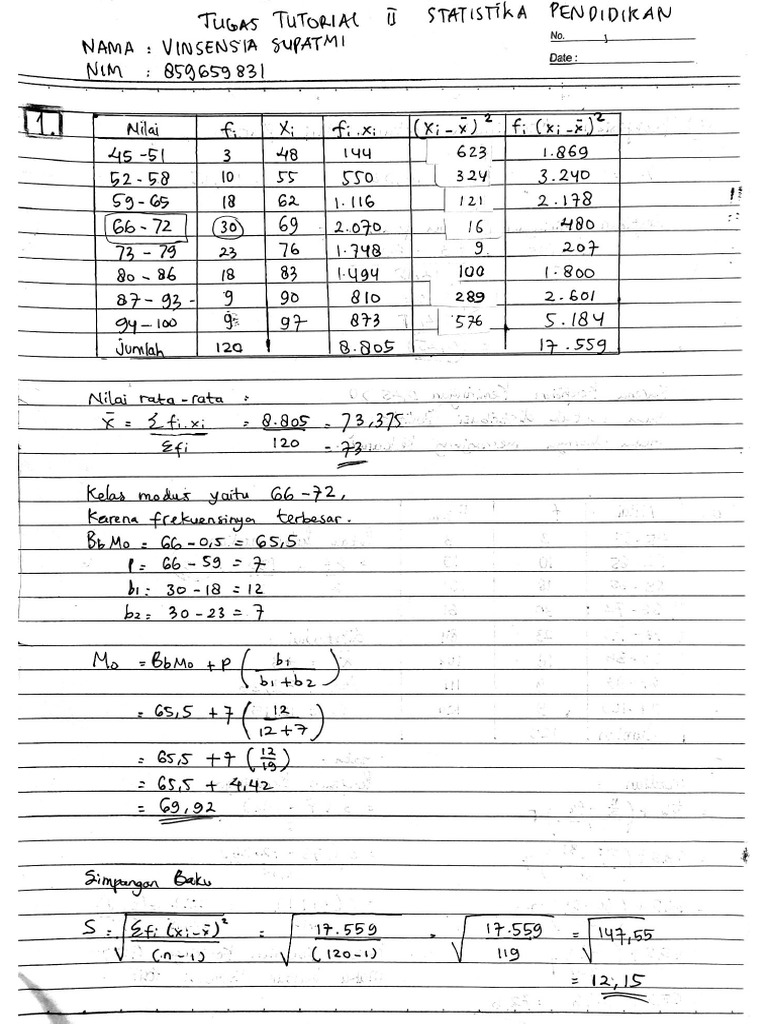 TUGAS TUTORIAL II STATISTIKA PENDIDIKAN
NAMA : VINSENSIA SUPATMI
NIM : 859659831
No. 1
Date :
1.
Nilai fi Xi fi.xi (Xi-x̄)² fi(xi-x̄)²
45-51 3 48 144 623 1.869
52-58 10 55 550 324 3.240
59-65 18 62 1.116 121 2.178
66-72 30 69 2.070 16 480
73-79 23 76 1.748 9 207
80-86 18 83 1.494 100 1.800
87-93 9 90 810 289 2.601
94-100 9 97 873 576 5.184
Jumlah 120 8.805 17.559
Nilai rata-rata :
x̄ = Σfi.xi / Σfi = 8.805 / 120 = 73,375
= 73
Kelas modus yaitu 66-72,
Karena frekuensinya terbesar.
BbMo = 66-0,5 = 65,5
P = 66-59 = 7
b1 = 30-18 = 12
b2 = 30-23 = 7
Mo = BbMo + P (b1 / b1+b2)
= 65,5 + 7 (12 / 12+7)
= 65,5 + 7 (12/19)
= 65,5 + 4,42
= 69,92
Simpangan Baku
S = √(Σfi(xi-x̄)² / (n-1)) = √(17.559 / (120-1)) = √(17.559 / 119) = √147,55
= 12,15